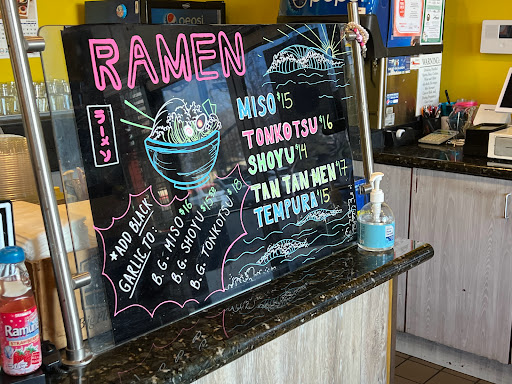 RAMEN
ラーメン
MISO $15
TONKOTSU $16
SHOYU $14
TAN TAN MEN $17
TEMPURA $15
*ADD BLACK
GARLIC TO:
B.G. MISO $16
B.G. SHOYU $15.50
B.G. TONKOTSU $18
pepsi
pepsi
WARNING
Ramu